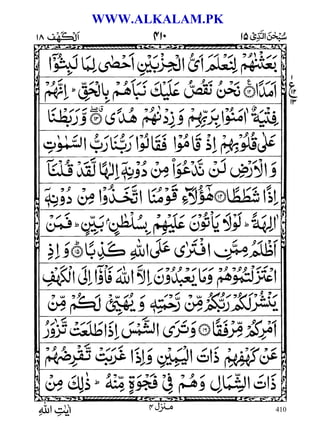 WWW.ALKALAM.PK
سُبْحٰنَ الَّذِيْ ١٥
٤١٠
اَلْكَهْف ١٨
بَعَثْنٰهُمْ لِنَعْلَمَ اَيُّ الْحِزْبَيْنِ اَحْصٰى لِمَا لَبِثُوْۤا
اَمَدًا ۝١٢ نَحْنُ نَقُصُّ عَلَيْكَ نَبَاَهُمْ بِالْحَقِّ ؕ اِنَّهُمْ
فِتْيَةٌ اٰمَنُوْا بِرَبِّهِمْ وَ زِدْنٰهُمْ هُدًى ۝١٣ وَّ رَبَطْنَا
عَلٰى قُلُوْبِهِمْ اِذْ قَامُوْا فَقَالُوْا رَبُّنَا رَبُّ السَّمٰوٰتِ
وَ الْاَرْضِ لَنْ نَّدْعُوَا۠ مِنْ دُوْنِهٖۤ اِلٰهًا لَّقَدْ قُلْنَاۤ
اِذًا شَطَطًا ۝١٤ هٰۤؤُلَآءِ قَوْمُنَا اتَّخَذُوْا مِنْ دُوْنِهٖۤ
اٰلِهَةً ؕ لَوْ لَا يَاْتُوْنَ عَلَيْهِمْ بِسُلْطٰنٍۭ بَيِّنٍ ؕ فَمَنْ
اَظْلَمُ مِمَّنِ افْتَرٰى عَلَى اللّٰهِ كَذِبًا ۝١٥ؕ وَ اِذِ
اعْتَزَلْتُمُوْهُمْ وَمَا يَعْبُدُوْنَ اِلَّا اللّٰهَ فَاْوٗۤا اِلَى الْكَهْفِ
يَنْشُرْ لَكُمْ رَبُّكُمْ مِّنْ رَّحْمَتِهٖ وَ يُهَيِّئْ لَكُمْ مِّنْ
اَمْرِكُمْ مِّرْفَقًا ۝١٦ وَتَرَى الشَّمْسَ اِذَا طَلَعَتْ تَّزٰوَرُ
عَنْ كَهْفِهِمْ ذَاتَ الْيَمِيْنِ وَاِذَا غَرَبَتْ تَّقْرِضُهُمْ
ذَاتَ الشِّمَالِ وَ هُمْ فِيْ فَجْوَةٍ مِّنْهُ ؕ ذٰلِكَ مِنْ
منزل ٤
اٰيٰتِ اللّٰهِ
410